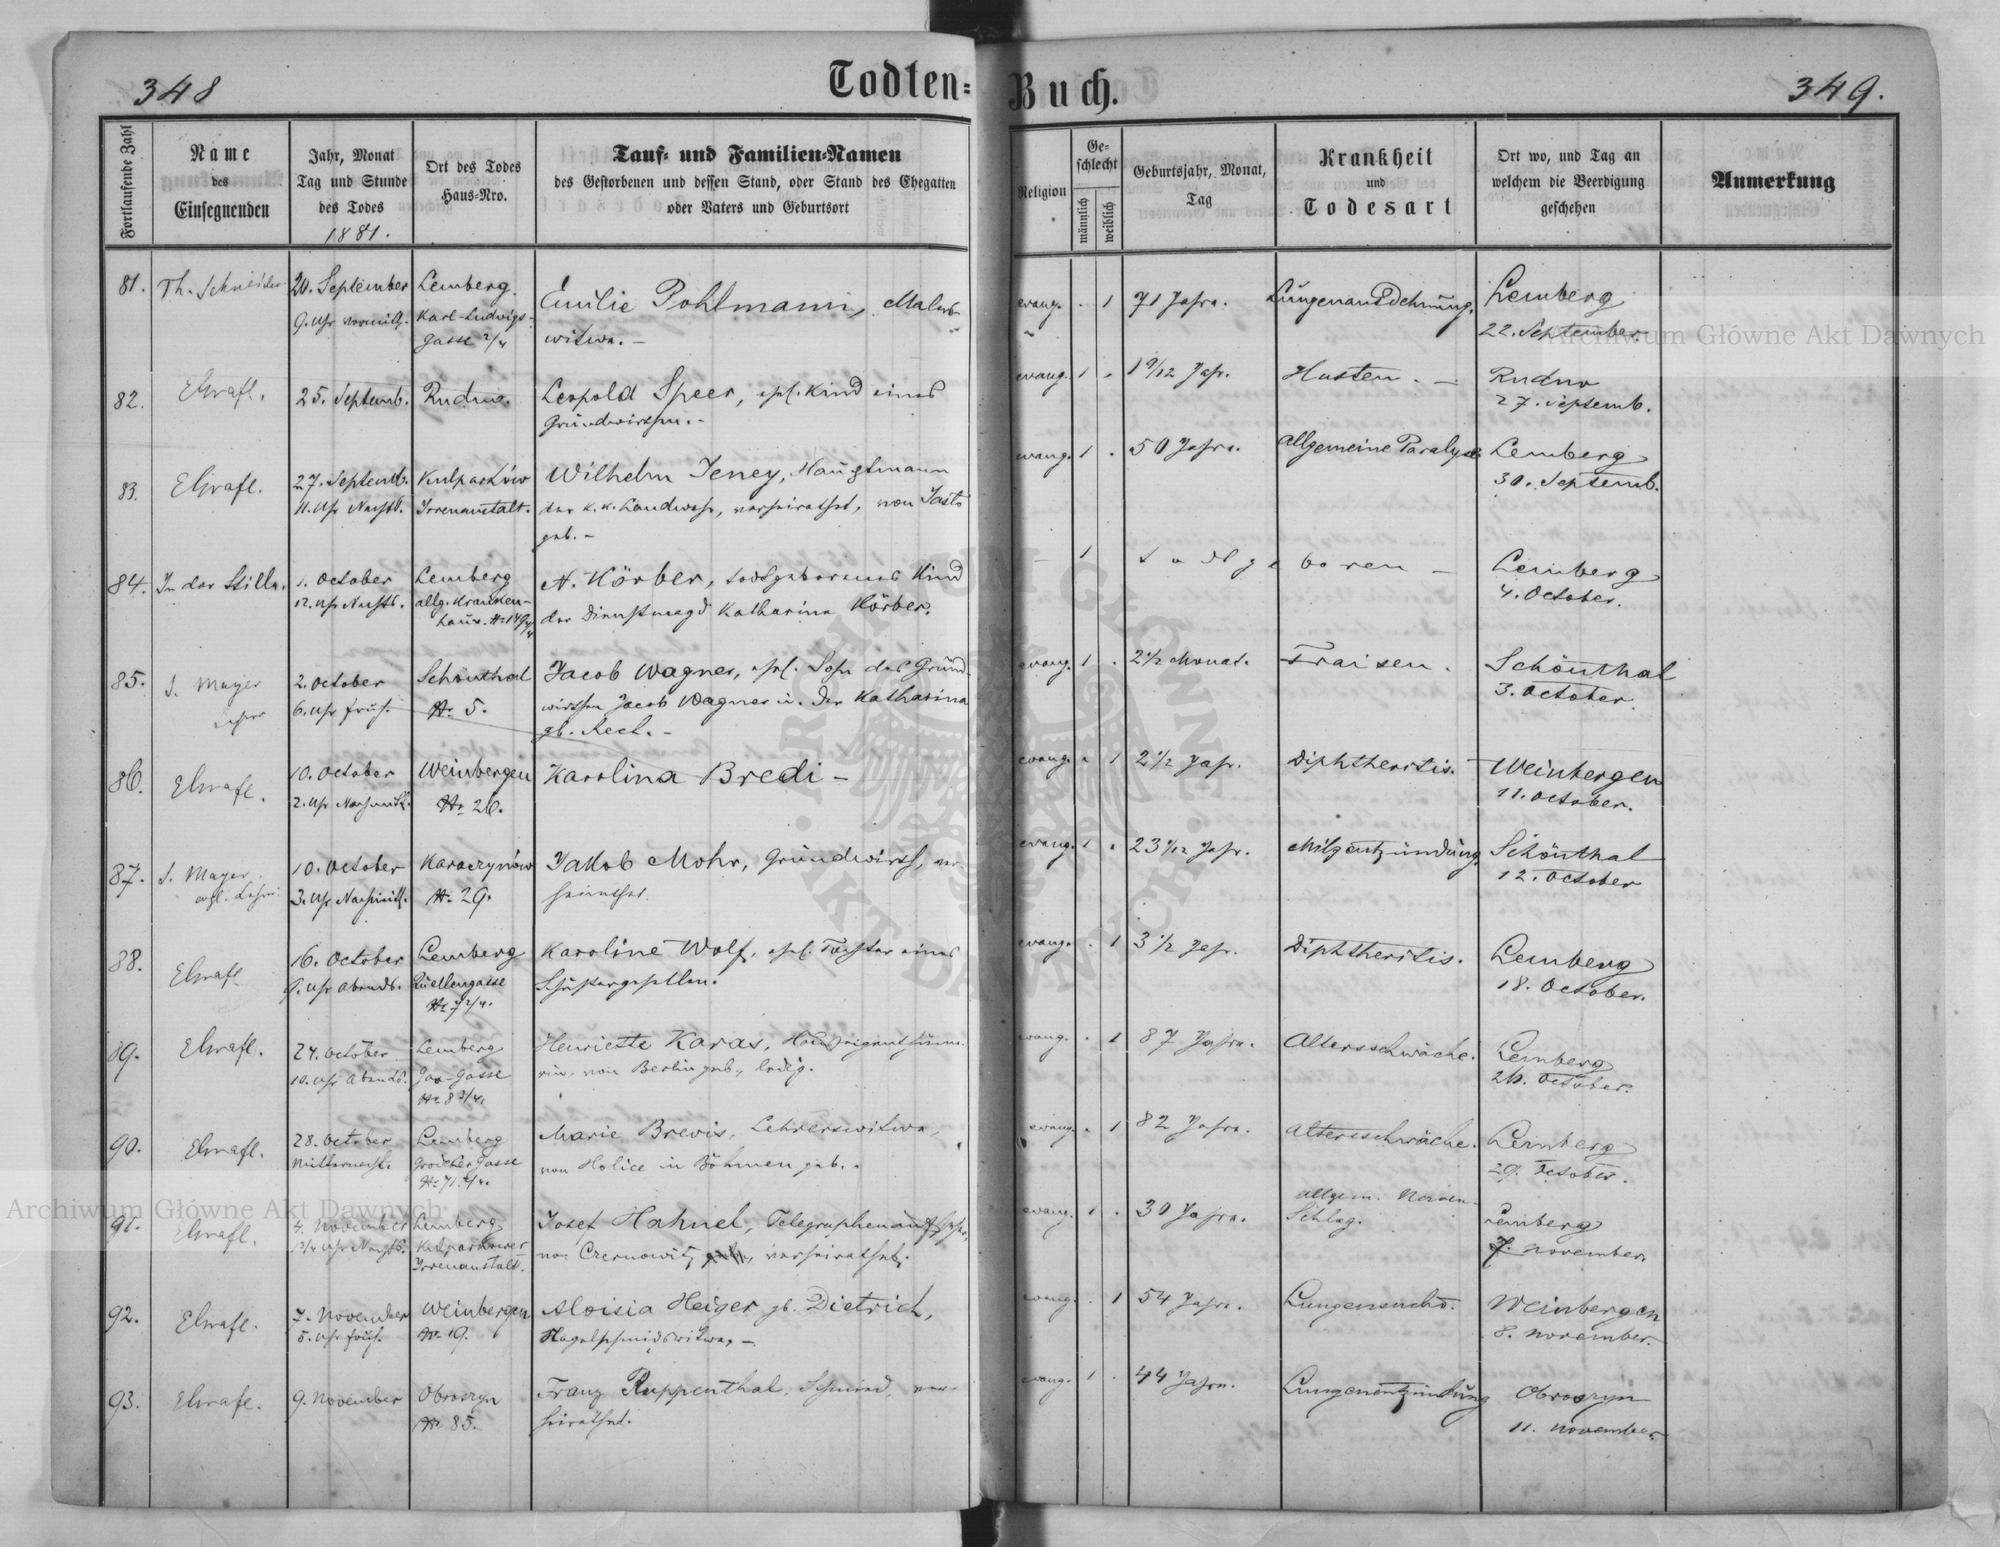 348
Todten=
Buch.
349.
Fortlaufende Zahl
Name
des
Einsegnenden
Jahr, Monat
Tag und Stunde
des Todes
1881.
Ort des Todes
Haus-Nro.
Tauf= und Familien=Namen
des Gestorbenen und dessen Stand, oder Stand des Ehegatten
oder Vaters und Geburtsort
Religion
Ge-
schlecht
männlich
weiblich
Geburtsjahr, Monat,
Tag
Krankheit
und
Todesart
Ort wo, und Tag an
welchem die Beerdigung
geschehen
Anmerkung
81. Th. Schneider 20. September Lemberg Emilie Pohlmann, Malers- evang. 1 71 Jahre. Lungenausdehnung. Lemberg
9. Uhr Vormittg. Karl-Ludwigs- witwe. – 22. September.
Gasse 2/4
82. 25. Septemb. Rudno. Leopold Speer, ehl. Kind eines evang. 1 1 9/12 Jahr. Husten. – Rudno
Grundwirthen. – 27. Septemb.
83. 27. Septemb. Kulparków Wilhelm Jeney, Hauptmann evang. 1 50 Jahre. Allgemeine Paralyse Lemberg
11. Uhr Nachts. Irrenanstalt. der k. k. Landwehr, verheirathet, von 30. Septemb.
geb. –
84. In der Stille. 1. October Lemberg N. Körber, todtgeborenes Kind – 1 todtgeboren – Lemberg
12. Uhr Nachts. allg. Kranken- der Dienstmagd Katharina Körber. 4. October.
haus.
85. J. Mayer 2. October Schönthal Jacob Wagner, ehl. Sohn des Grund- evang. 1 2 1/2 Monat. Fraisen. Schönthal
Lehrer 6. Uhr früh. Nr. 5. wirthen Jacob Wagner u. der Katharina 3. October.
gb. Rech. –
86. 10. October Weinbergen Karolina Bredi – evang. 1 2 1/2 Jahr. Diphtheritis. Weinbergen
2. Uhr Nachmitt. Nr. 26. 11. October.
87. J. Mayer 10. October Karaczynów Jakob Mohr, Grundwirth, ver- evang. 1 23 Jahr. Milzentzündung. Schönthal
evgl. Lehrer 3. Uhr Nachmitt. Nr. 29. heirathet. 12. October
88. 16. October Lemberg Karoline Wolf, ehl. Tochter eines evang. 1 3 1/2 Jahr. Diphtheritis. Lemberg
9. Uhr Abends. Quellengasse Schustergesellen. 18. October.
Nr. 7 2/4.
89. 24. October Lemberg Henriette Karas, Hauseigenthüme- evang. 1 87 Jahre. Altersschwäche. Lemberg
10. Uhr Abends. Gasse rin, von Berlin geb., ledig. 26. October.
Nr. 8 3/4.
90. 28. October Lemberg Marie Brevis, Lehrerswitwe, evang. 1 82 Jahre. Altersschwäche. Lemberg
Mitternacht. Grodeker Gasse von Holice in Böhmen geb. 29. October.
91. 4. November Lemberg Josef Hahnel, Telegraphenaufseher, evang. 1 30 Jahre. allgem. Nerven- Lemberg
Uhr Nachts. Kulparkower von Czernowitz verheirathet. Schlag. 7. November.
Irrenanstalt.
92. 7. November Weinbergen Aloisia Heiger gb. Dietrich, evang. 1 54 Jahre. Lungensucht. Weinbergen
5. Uhr früh. Nr. 19. Nagelschmidswitwe. – 8. November.
93. 9. November Obroszyn Franz Ruppenthal, Schmied, ver- evang. 1 44 Jahre. Lungenentzündung Obroszyn
Nr. 85. heirathet. 11. November.
Archiwum Główne Akt Dawnych
Archiwum Główne Akt Dawnych
ARCHIWUM GŁÓWNE
AKT DAWNYCH